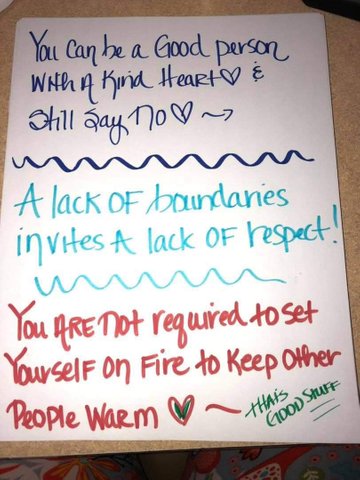 You Can be a Good person
With A Kind Heart♡ &
Still Say No♡ →
A lack OF boundaries
invites A lack OF respect!
You ARE Not required to set
Yourself On Fire to Keep Other
People Warm ♡ ~ that's
GOOD STUFF